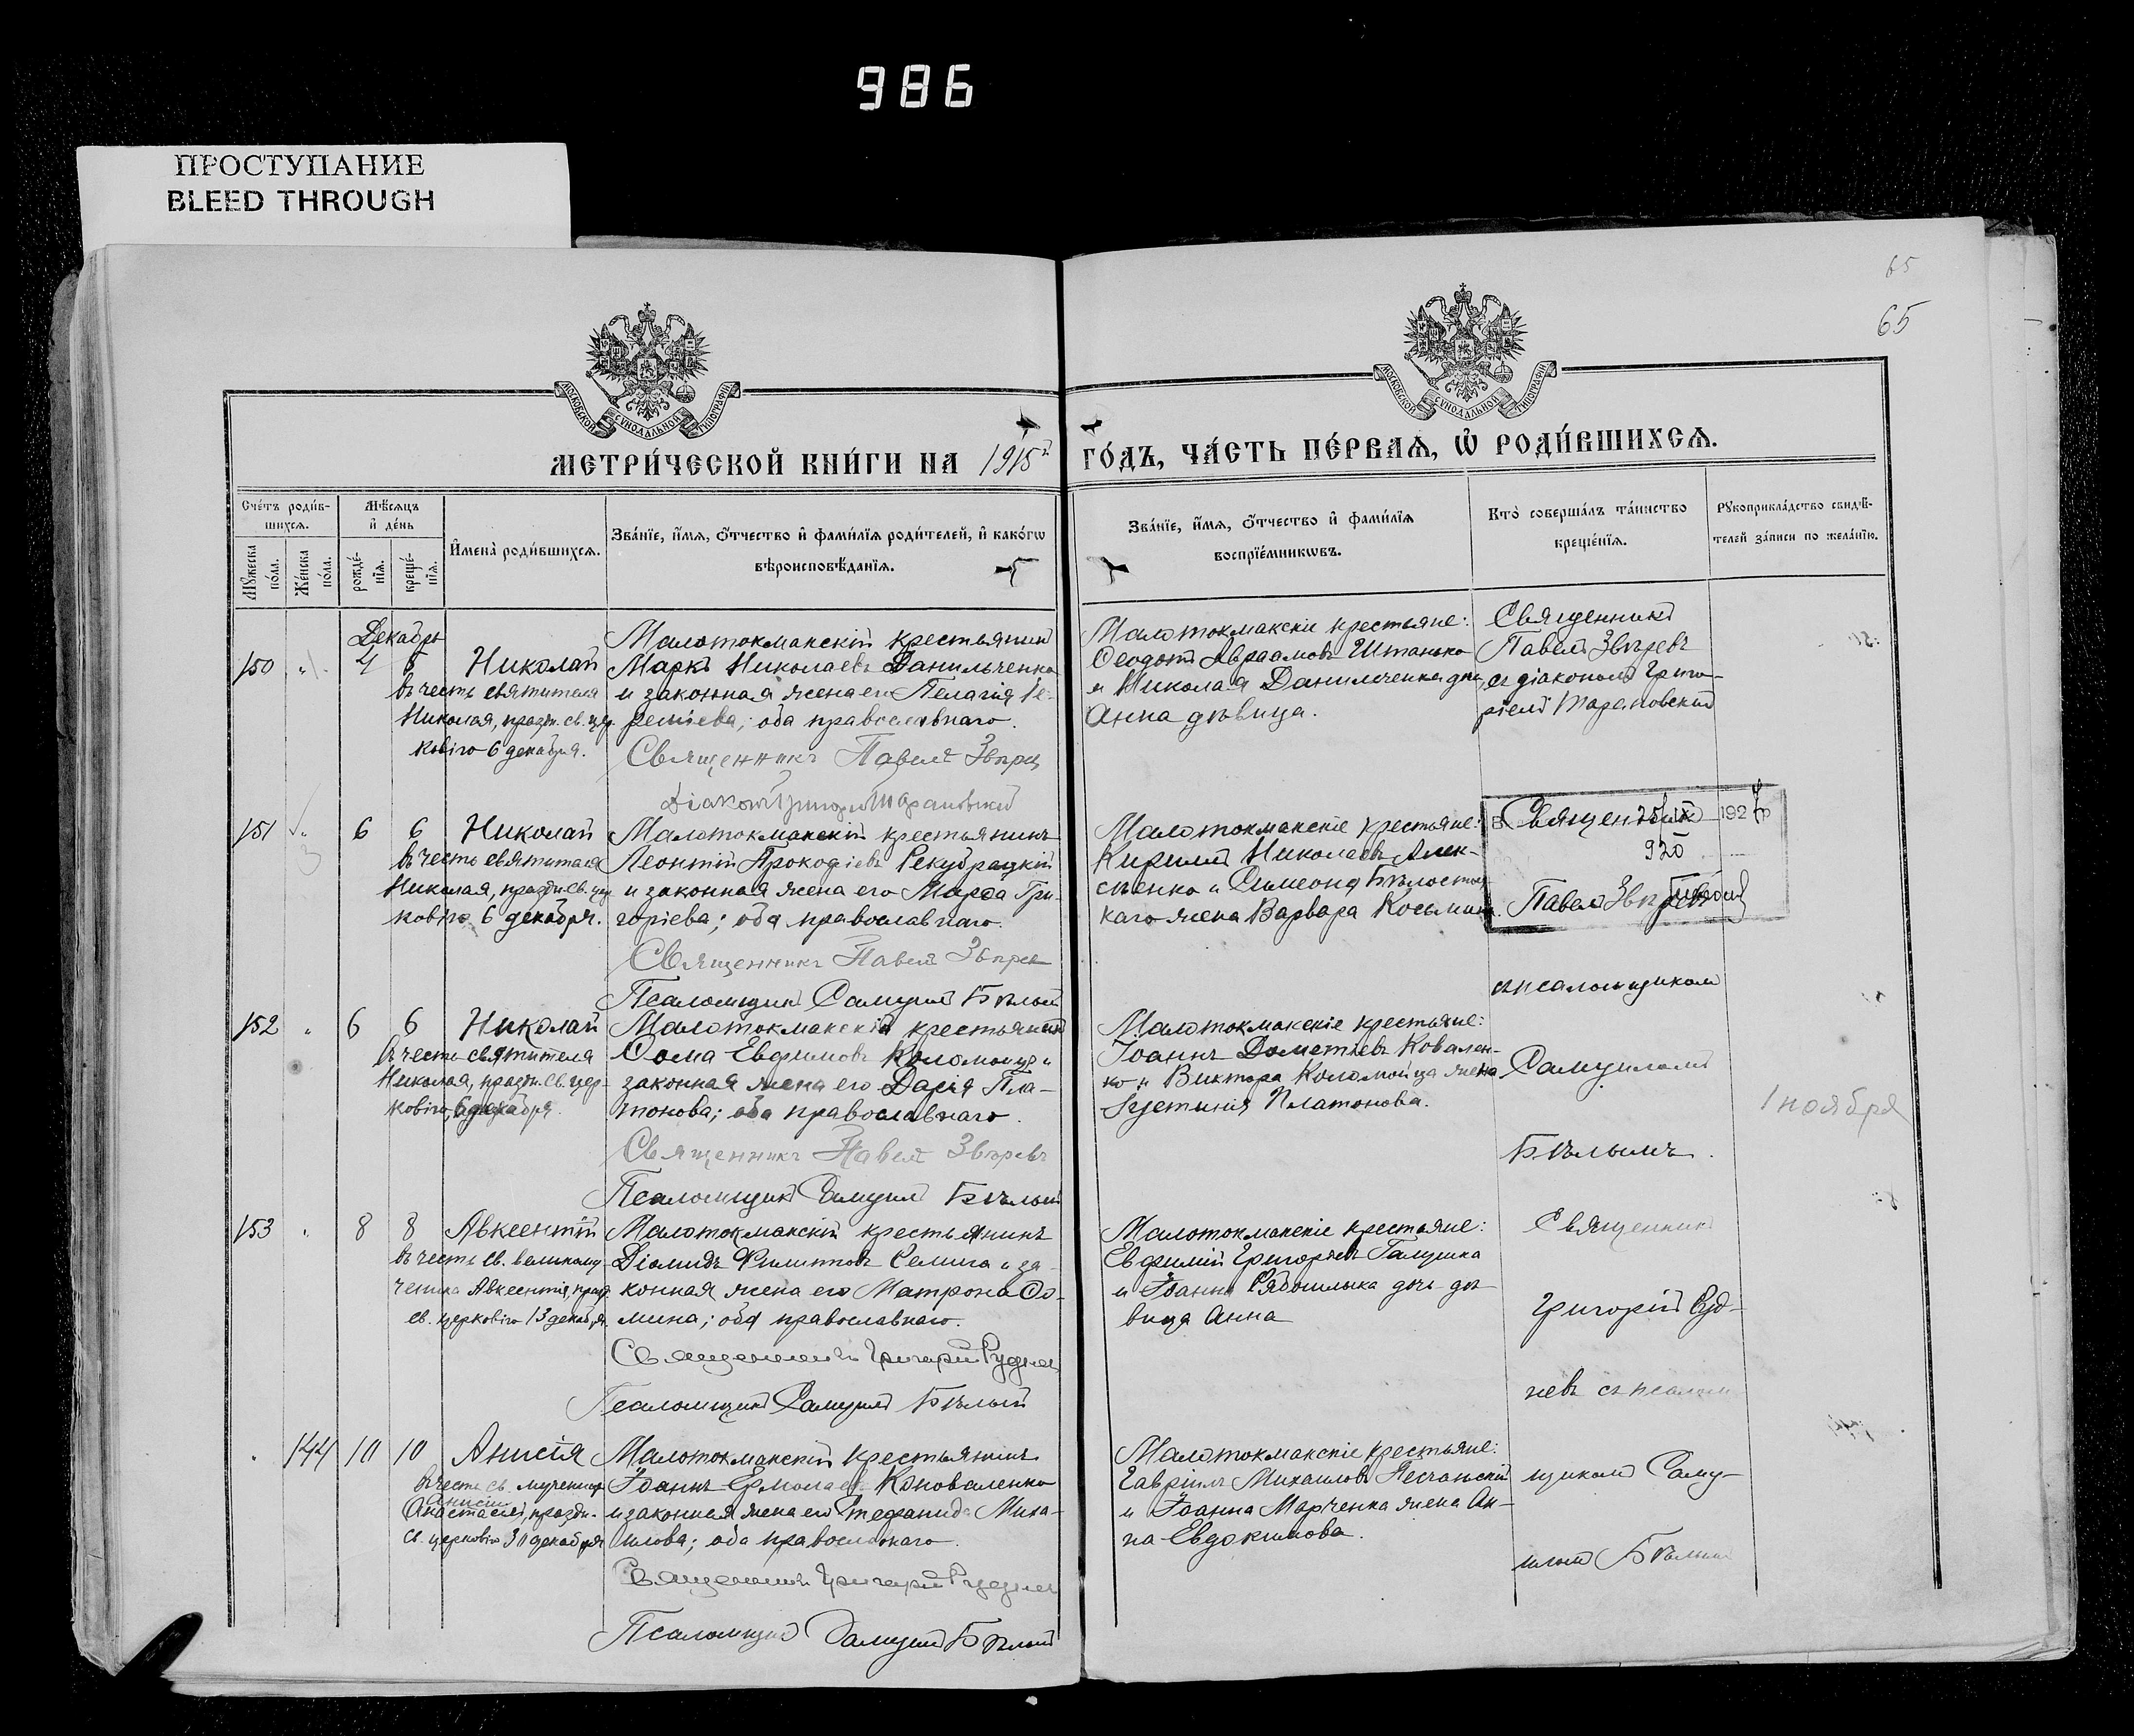 986
ПРОСТУПАНИЕ
BLEED THROUGH
65
65
МОСКОВСКОЙ СУНОДАЛЬНОЙ ТИПОГРАФІИ
МОСКОВСКОЙ СУНОДАЛЬНОЙ ТИПОГРАФІИ
МЕТРИ́ЧЕСКОЙ КНИ́ГИ НА 1915й ГО́ДЪ, ЧА́СТЬ ПЕ́РВАѦ, Ѡ҆ РОДИ́ВШИХСѦ.
Сче́тъ роди́в-
шихсѧ.
Мꙋ́жеска по́ла.
Же́нска по́ла.
Мѣ́сѧцъ
и҆ де́нь
рожде́-
нїѧ.
креще́-
нїѧ.
И҆мена̀ роди́вшихсѧ.
Зва́нїе, и҆́мѧ, ѻ҆́тчество и҆ фами́лїѧ роди́телей, и҆ како́гѡ
вѣроисповѣ́данїѧ.
Зва́нїе, и҆́мѧ, ѻ҆́тчество и҆ фами́лїѧ
воспрїе́мникѡвъ.
Кто̀ соверша́лъ та́инство
креще́нїѧ.
Рꙋкоприкла́дство свидѣ́-
телей за́писи по жела́нїю.
Декабрь
150 " 4 5 Николай
въ честь святителя
Николая, праздн. св. цер-
ковію 6 декабря.
Малотокмакскій крестьянинъ
Маркъ Николаевъ Данильченко
и законная жена его Пелагія Те-
рентіева; оба православнаго.
Священникъ Павелъ Звѣревъ
Діаконъ Григорій Тарановскій
Малотокмакскіе крестьяне:
Ѳеодотъ Авраамовъ Штанько
и Николая Данильченка дочь
Анна дѣвица.
Священникъ
Павелъ Звѣревъ
съ діакономъ Григо-
ріемъ Тарановскимъ
151 " 6 6 Николай
въ честь святителя
Николая, праздн. св. цер-
ковію 6 декабря.
Малотокмакскій крестьянинъ
Леонтій Прокофіевъ Рекубрацкій
и законная жена его Марѳа Гри-
горіева; оба православнаго.
Священникъ Павелъ Звѣревъ
Псаломщикъ Самуилъ Бѣлый
Малотокмакскіе крестьяне:
Кириллъ Николаевъ Алек-
сѣенко и Симеона Бѣлостоц-
каго жена Варвара Косьмина.
Священникъ
192
920
Павелъ Звѣревъ
съ псаломщикомъ
152 " 6 6 Николай
въ честь святителя
Николая, праздн. св. цер-
ковію 6 декабря.
Малотокмакскій крестьянинъ
Ѳома Евфимовъ Коломоецъ и
законная жена его Дарія Пла-
тонова; оба православнаго.
Священникъ Павелъ Звѣревъ
Псаломщикъ Самуилъ Бѣлый
Малотокмакскіе крестьяне:
Іоаннъ Дометіевъ Ковален-
ко и Виктора Коломойца жена
Іустинія Платонова.
Самуиломъ
Бѣлымъ.
1 ноября
153 " 8 8 Авксентій
въ честь св. великому-
ченика Авксентія, празд.
св. церковію 13 декабря.
Малотокмакскій крестьянинъ
Діомидъ Филипповъ Семига и за-
конная жена его Матрона Ѳо-
мина; оба православнаго.
Священникъ Григорій Рудневъ
Псаломщикъ Самуилъ Бѣлый
Малотокмакскіе крестьяне:
Евфимій Григорьевъ Галушка
и Іоанна Рябошлыка дочь дѣ-
вица Анна
Священникъ
Григорій Руд-
невъ съ псалом-
" 144 10 10 Анисія
въ честь св. мученицы
Анисіи
Анастасіи, праздн.
св. церковію 30 декабря
Малотокмакскій крестьянинъ
Іоаннъ Ермолаевъ Коноваленко
и законная жена его Стефанида Миха-
илова; оба православнаго.
Священникъ Григорій Рудневъ
Псаломщикъ Самуилъ Бѣлый
Малотокмакскіе крестьяне:
Гавріилъ Михаиловъ Песчанскій
и Іоанна Марченка жена Ан-
на Евдокимова.
щикомъ Саму-
иломъ Бѣлымъ